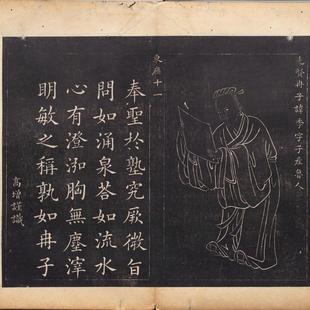 先賢冉子諱季字子產魯人
東廡十一
奉聖於塾究厥微旨
問如涌泉荅如流水
心有澄泓胸無塵滓
明敏之稱孰如冉子
高增謹識